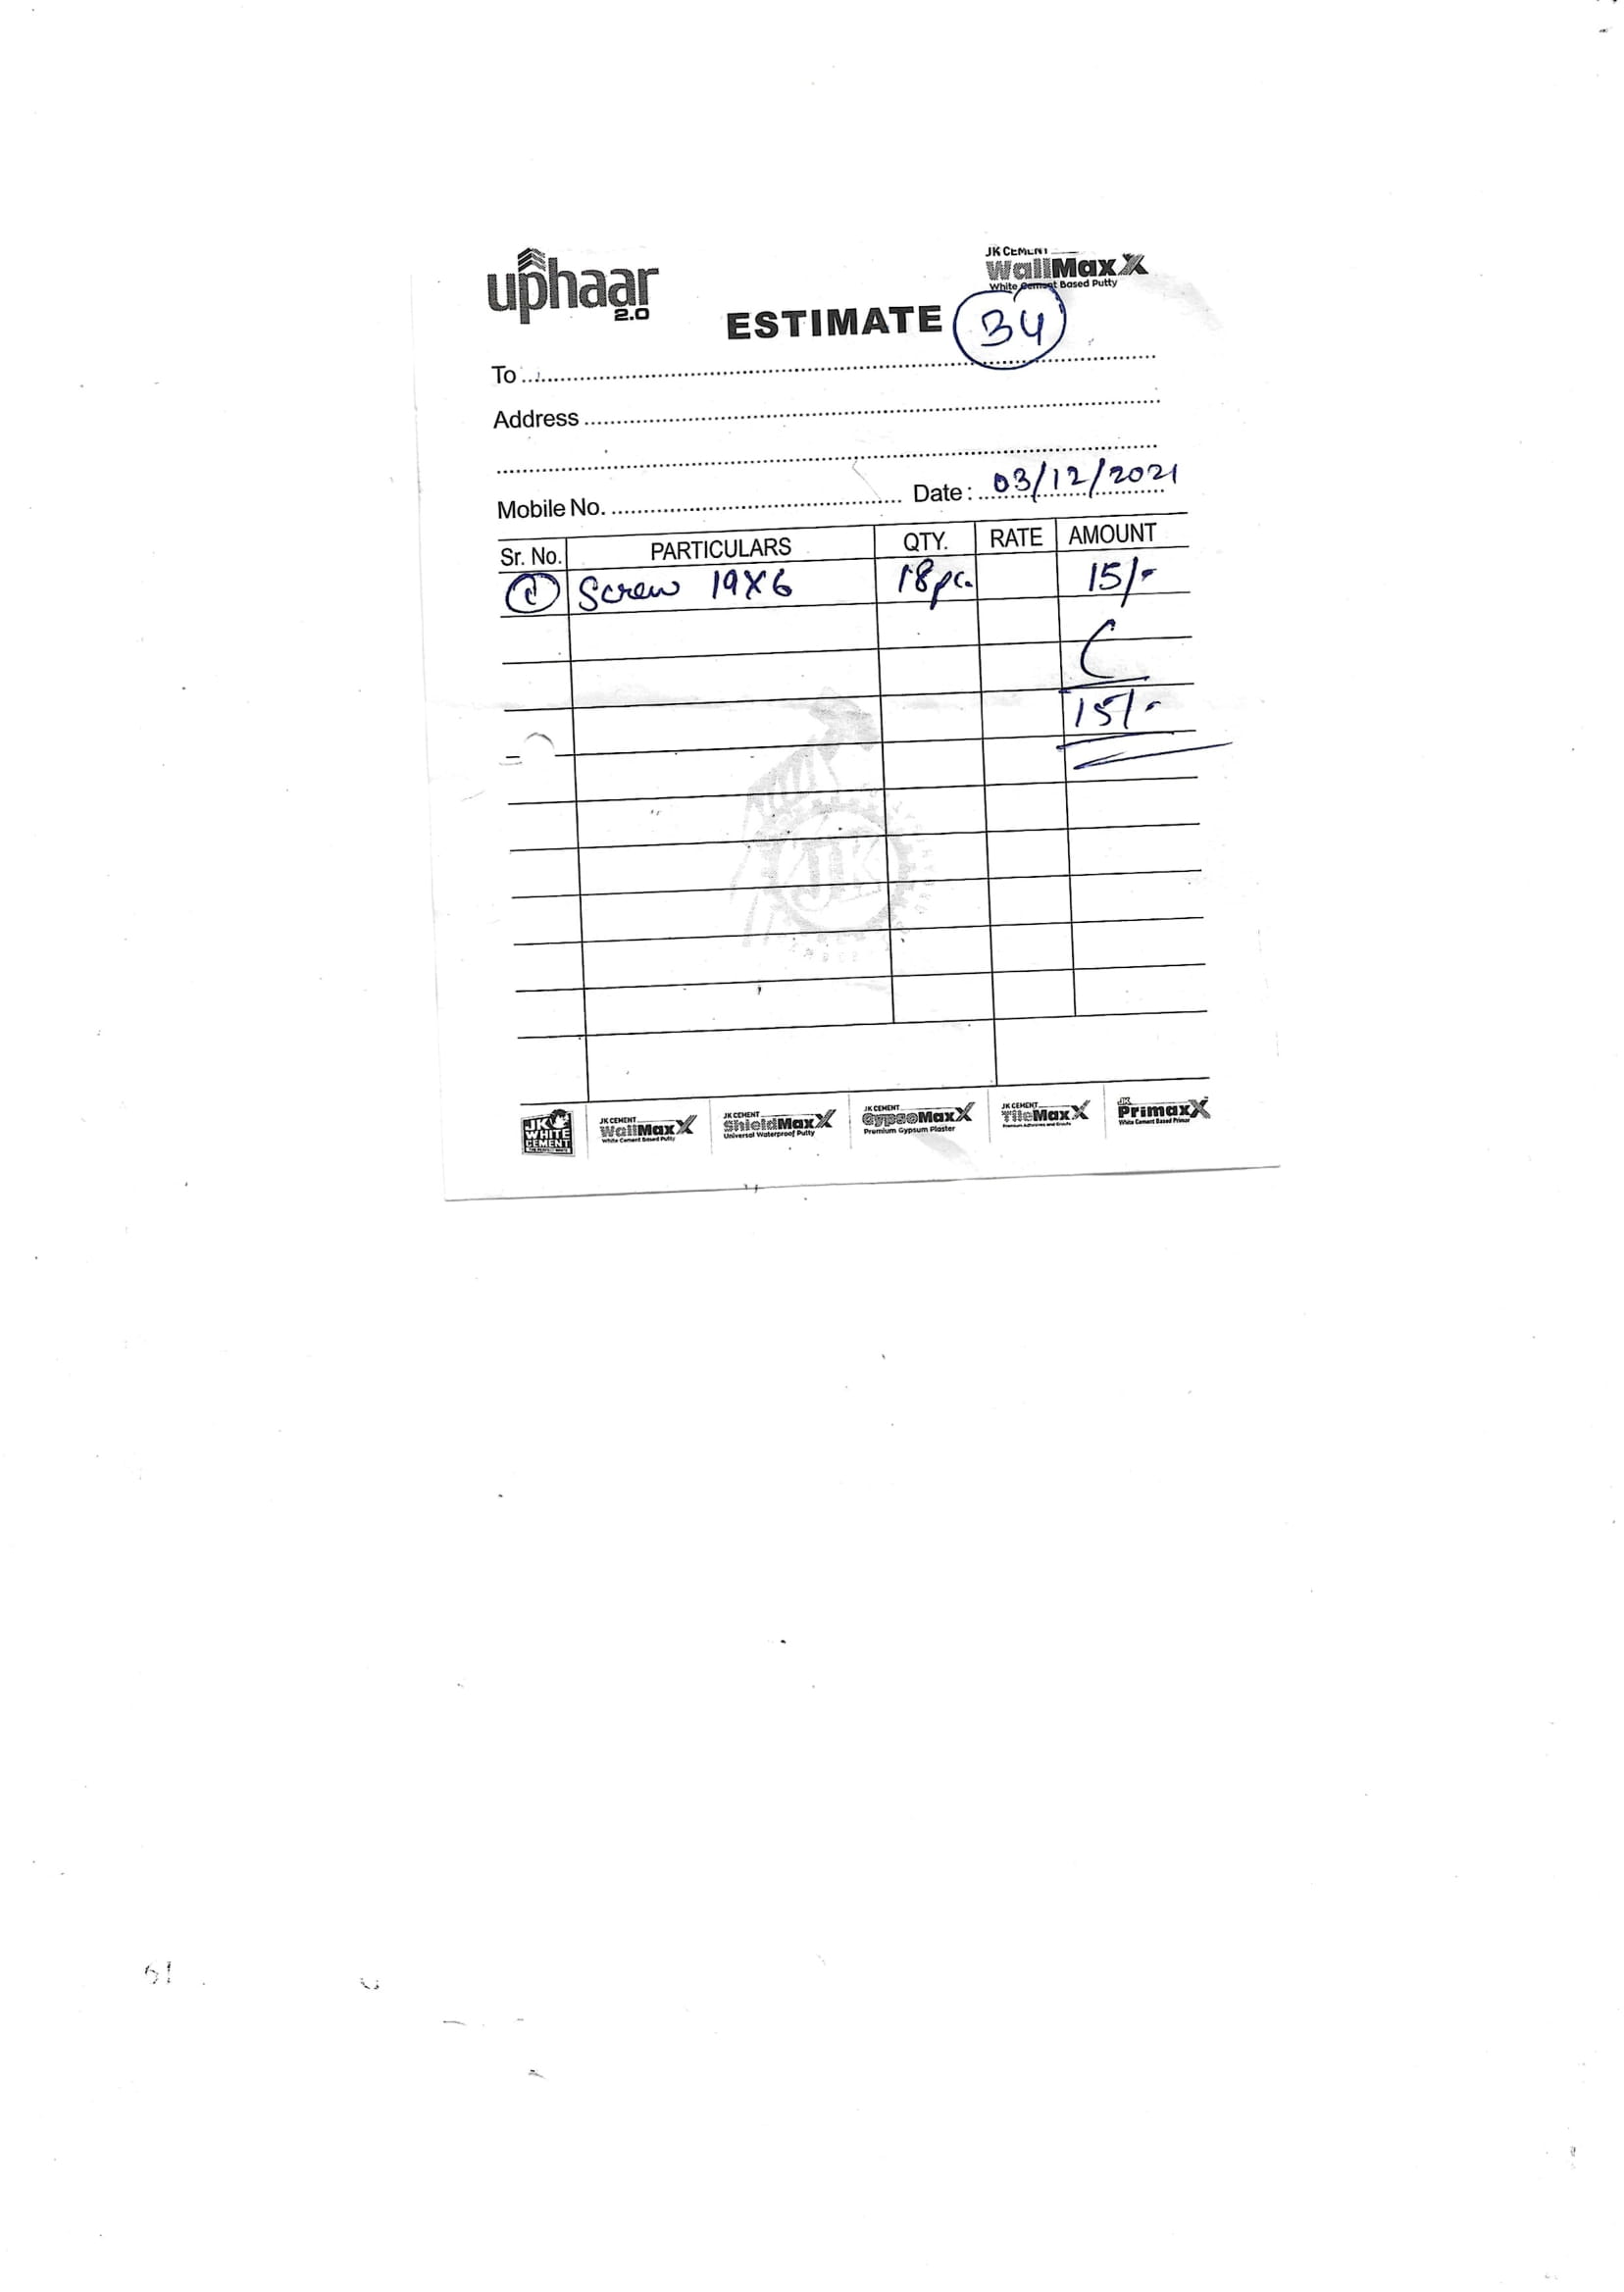 uphaar
2.0
JK CEMENT
WallMaxX
White Cement Based Putty
ESTIMATE 34
To
Address
Mobile No. Date: 03/12/2021
Sr. No. PARTICULARS QTY. RATE AMOUNT
① Screw 19X6 18pc. 15/-
15/-
JK
JK WHITE CEMENT
JK CEMENT WallMaxX White Cement Based Putty
JK CEMENT ShieldMaxX Universal Waterproof Putty
JK CEMENT GypsoMaxX Premium Gypsum Plaster
JK CEMENT TileMaxX
JK PrimaxX White Cement Based Primer